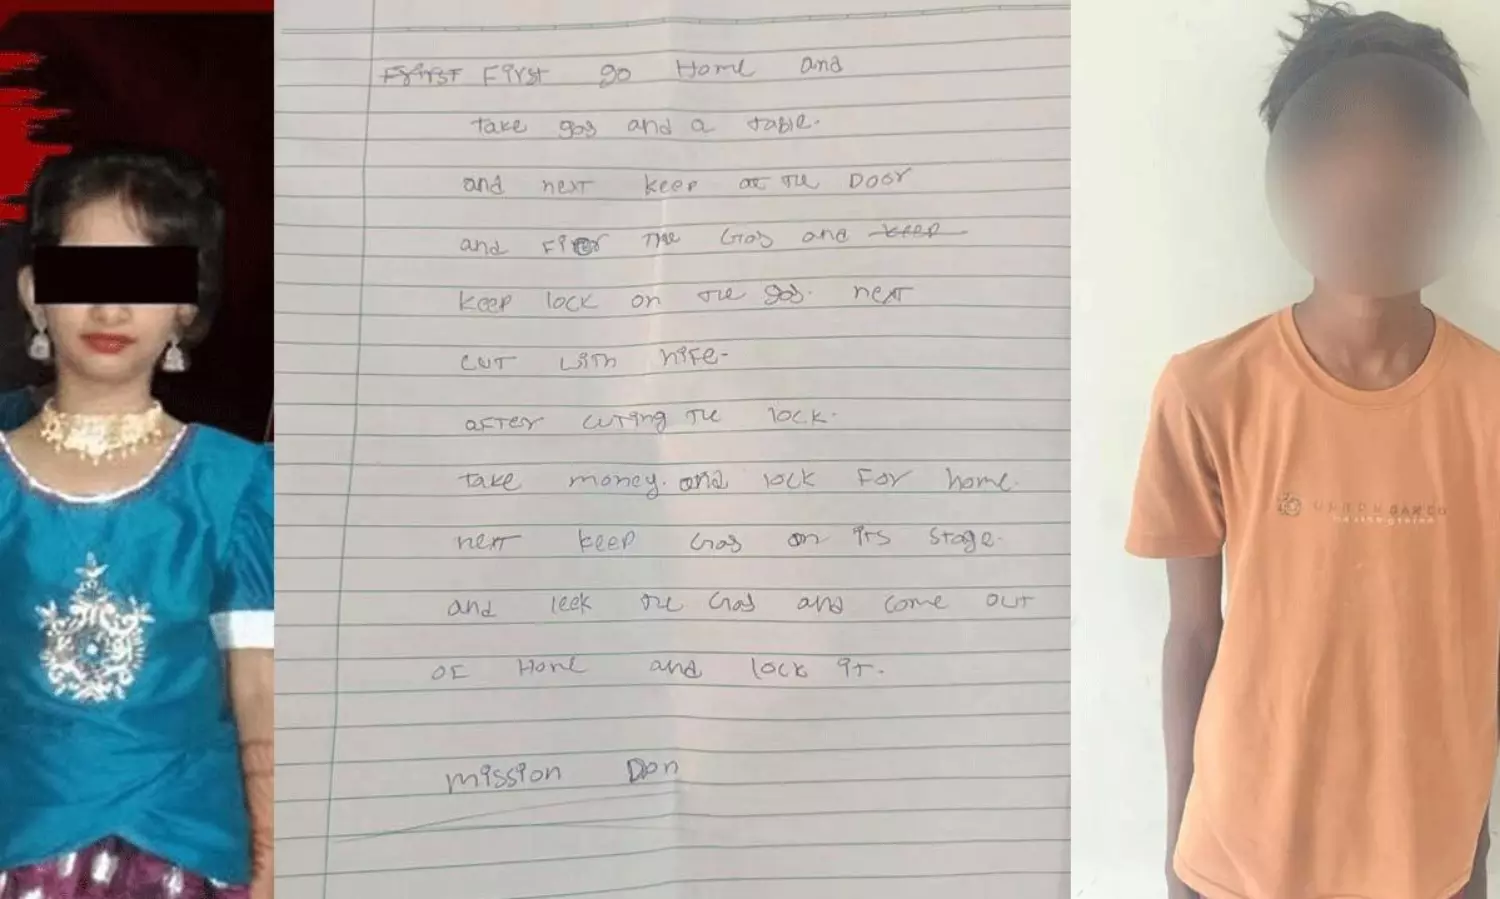 First First go Home and
take gas and a table.
and next keep at the Door
and Fier the Gas and keep
keep lock on the gas. next
cut with nife-
after cuting the lock.
take money. and lock For home.
next keep Gas on its stage.
and leek the Gas and come out
of Home and lock it.
mission Don